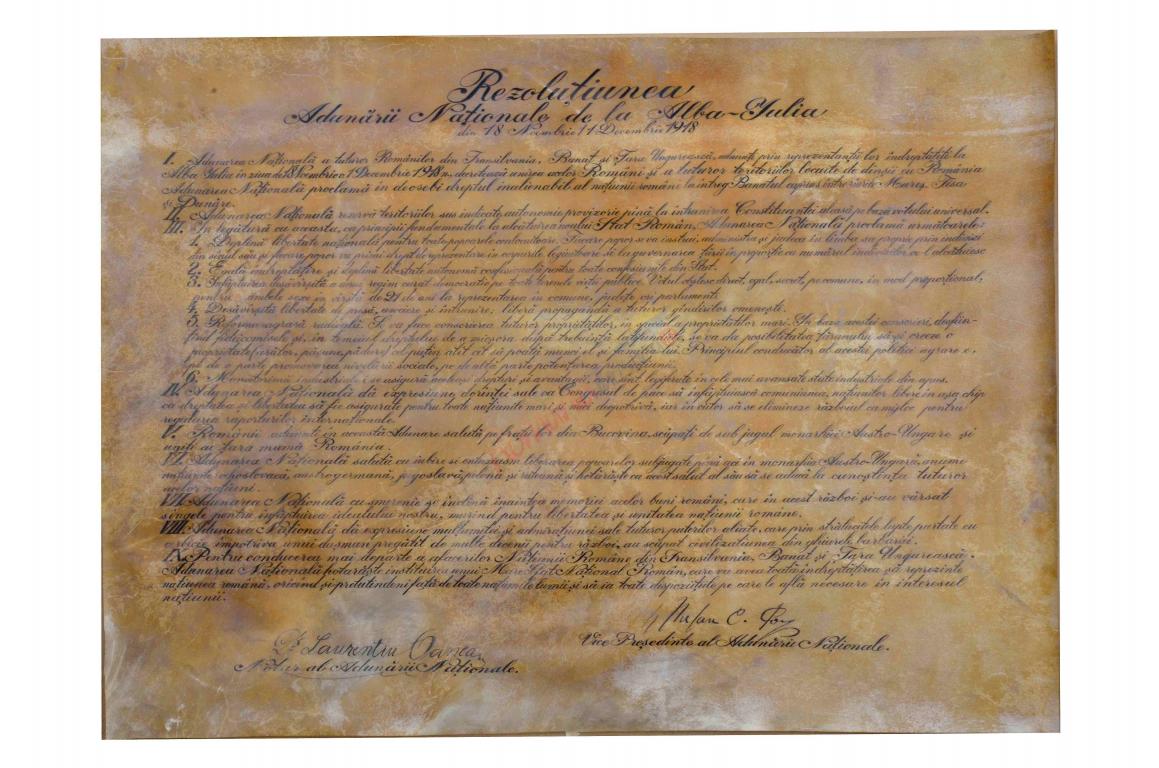 Rezoluțiunea
Adunării Naționale de la Alba-Iulia
din 18 Noembrie/1 Decembrie 1918
I. Adunarea Națională a tuturor Românilor din Transilvania, Banat și Țara Ungurească, adunați prin reprezentanții lor îndreptățiți la
Alba Iulia în ziua de 18 Noembrie/1 Decembrie 1918, decretează unirea acelor Români și a tuturor teritoriilor locuite de dînșii cu România
Adunarea Națională proclamă în deosebi dreptul inalienabil al națiunii române la întreg Banatul cuprins între rîurile Mureș, Tisa
și Dunăre.
II. Adunarea Națională rezervă teritoriilor sus indicate autonomie provizorie pînă la întrunirea Constituantei aleasă pe baza votului universal.
III. În legătură cu aceasta, ca principii fundamentale la alcătuirea noului Stat Român, Adunarea Națională proclamă următoarele:
1. Deplină libertate națională pentru toate popoarele conlocuitoare. Fiecare popor se va instrui, administra și judeca în limba sa proprie prin indivizi
din sînul său și fiecare popor va primi drept de reprezentare în corpurile legiuitoare și la guvernarea țării în proporție cu numărul indivizilor ce-l alcătuiesc
2. Egală îndreptățire și deplină libertate autonomă confesională pentru toate confesiunile din Stat.
3. Înfăptuirea desăvîrșită a unui regim curat democratic pe toate terenele vieții publice. Votul obștesc, direct, egal, secret, pe comune, în mod proporțional,
pentru ambele sexe în vîrstă de 21 de ani la reprezentarea în comune, județe ori parlament.
4. Desăvîrșită libertate de presă, asociere și întrunire, liberă propagandă a tuturor gîndirilor omenești.
5. Reforma agrară radicală. Se va face conscrierea tuturor proprietăților, în special a proprietăților mari. În baza acestei conscrieri, desfiin-
țînd fideicomisele și, în temeiul dreptului de a micșora după trebuință latifundiile, se va da posibilitatea țăranului să-și creeze o
proprietate (arător, pășune, pădure) cel puțin atît cît să poată munci el și familia lui. Principiul conducător al acestei politici agrare e,
pe de o parte promovarea nivelării sociale, pe de altă parte potențarea producțiunii.
6. Muncitorimei industriale i se asigură aceleași drepturi și avantagii, care sînt legiferate în cele mai avansate state industriale din apus.
IV. Adunarea Națională dă expresiune dorinței sale ca Congresul de pace să înfăptuiască comuniunea națiunilor libere în așa chip
ca dreptatea și libertatea să fie asigurate pentru toate națiunile mari și mici deopotrivă, iar în viitor să se elimineze războiul ca mijloc pentru
regularea raporturilor internaționale.
V. Românii adunați în această Adunare salută pe frații lor din Bucovina, scăpați de sub jugul monarhiei Austro-Ungare și
uniți cu țara mumă România.
VI. Adunarea Națională salută cu iubire și entuziasm liberarea popoarelor subjugate pînă aci în monarhia Austro-Ungară, anume
națiunile: cehoslovacă, austrogermană, iugoslavă, polonă și ruteană și hotărăște ca acest salut al său să se aducă la cunoștința tuturor
acelor națiuni.
VII. Adunarea Națională cu smerenie se închină înaintea memoriei acelor buni români, care în acest război și-au vărsat
sîngele pentru înfăptuirea idealului nostru, murind pentru libertatea și unitatea națiunii române.
VIII. Adunarea Națională dă expresiune mulțumirei și admirațiunei sale tuturor puterilor aliate, care prin strălucitele lupte purtate cu
împotriva unui dușman pregătit de multe decenii pentru război, au scăpat civilizațiunea din ghiarele barbariei.
IX. Pentru conducerea mai departe a afacerilor Națiunii Române din Transilvania, Banat și Țara Ungurească,
Adunarea Națională hotărăște instituirea unui Mare Sfat Național Român, care va avea toată îndreptățirea să reprezinte
națiunea română, oricînd și pretutindeni față de toate națiunile lumii și să ia toate dispozițiile pe care le află necesare în interesul
națiunii.
Dr. Laurențiu Oanea
Notar al Adunării Naționale.
Ștefan C. Pop
Vice Președinte al Adunării Naționale.